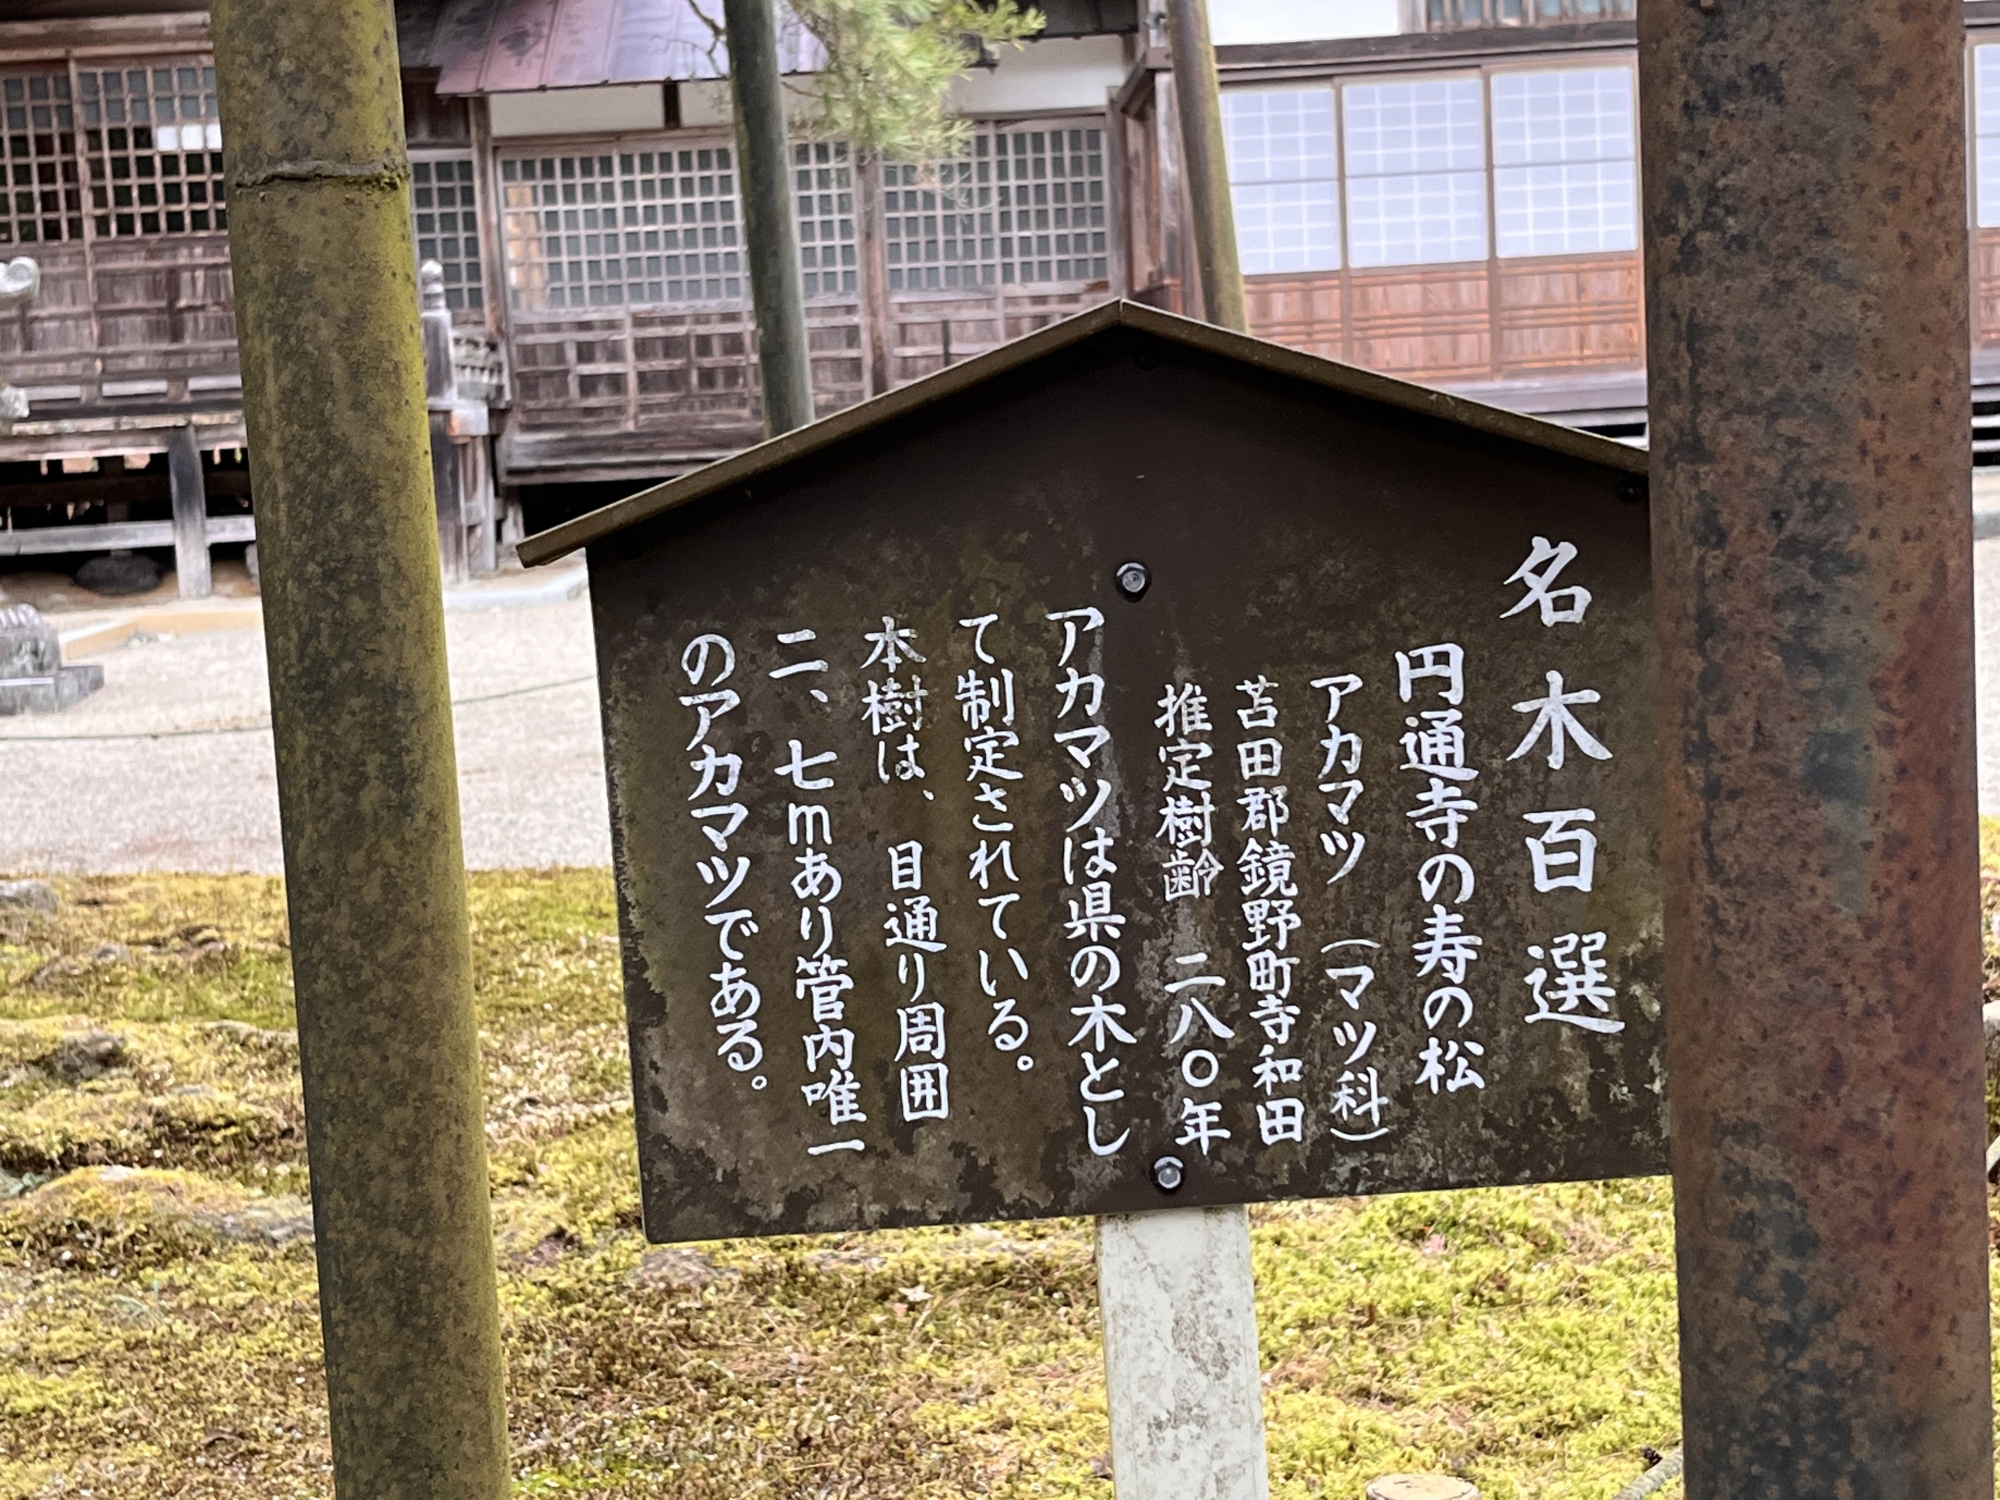 名木百選
円通寺の寿の松
アカマツ（マツ科）
苫田郡鏡野町寺和田
推定樹齢　二八〇年
アカマツは県の木とし
て制定されている。
本樹は、目通り周囲
二、七mあり管内唯一
のアカマツである。